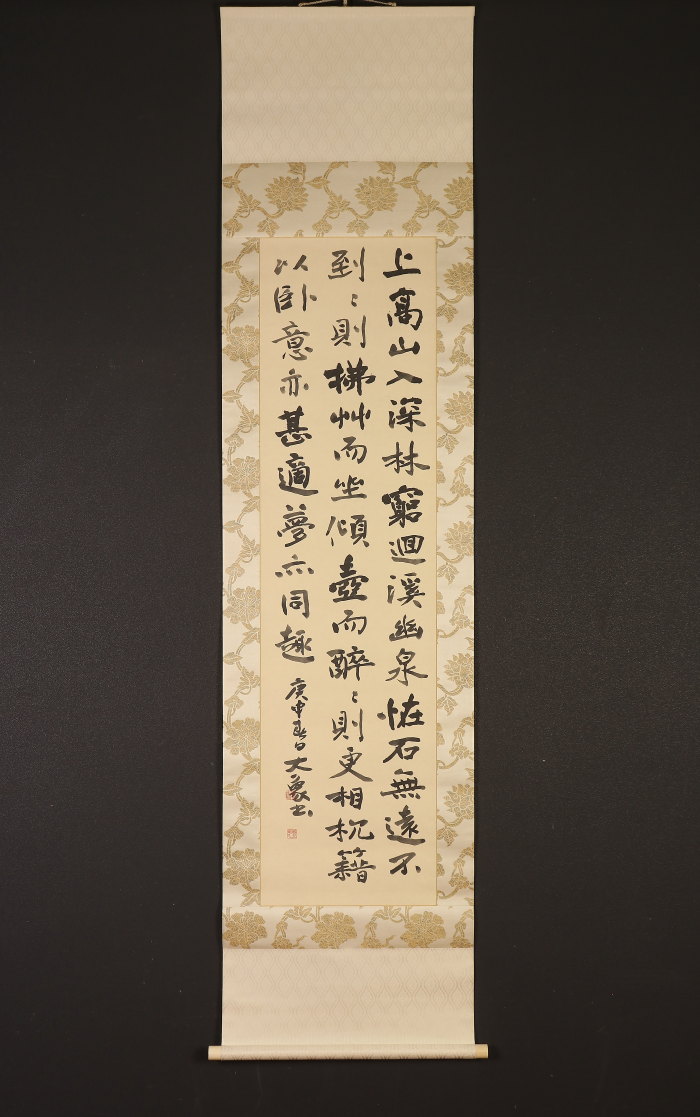 上高山入深林窮迴溪幽泉怪石無遠不
到〻則拂艸而坐傾壺而醉〻則更相枕籍
以卧意亦甚適夢亦同趣
庚申春日大象書